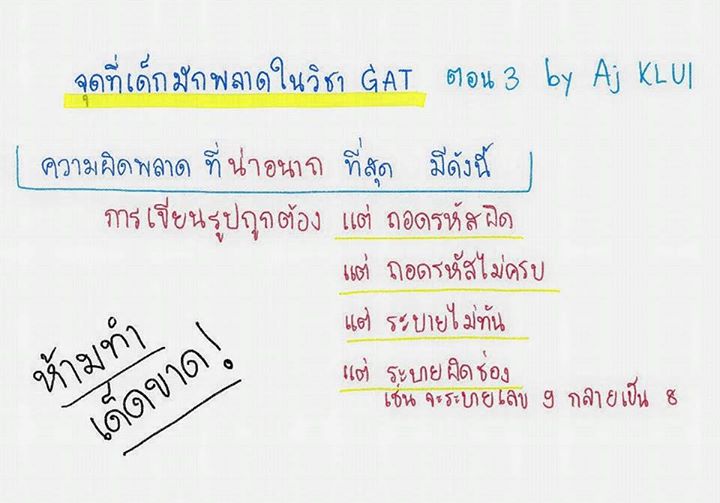 จุดที่เด็กมักพลาดในวิชา GAT ตอน 3 by Aj KLUI
ความผิดพลาด ที่ น่าอนาถ ที่สุด มีดังนี้
การเขียนรูปถูกต้อง แต่ ถอดรหัสผิด
แต่ ถอดรหัสไม่ครบ
แต่ ระบายไม่ทัน
แต่ ระบายผิดช่อง
เช่น จะระบายเลข 9 กลายเป็น 8
ห้ามทำ
เด็ดขาด!